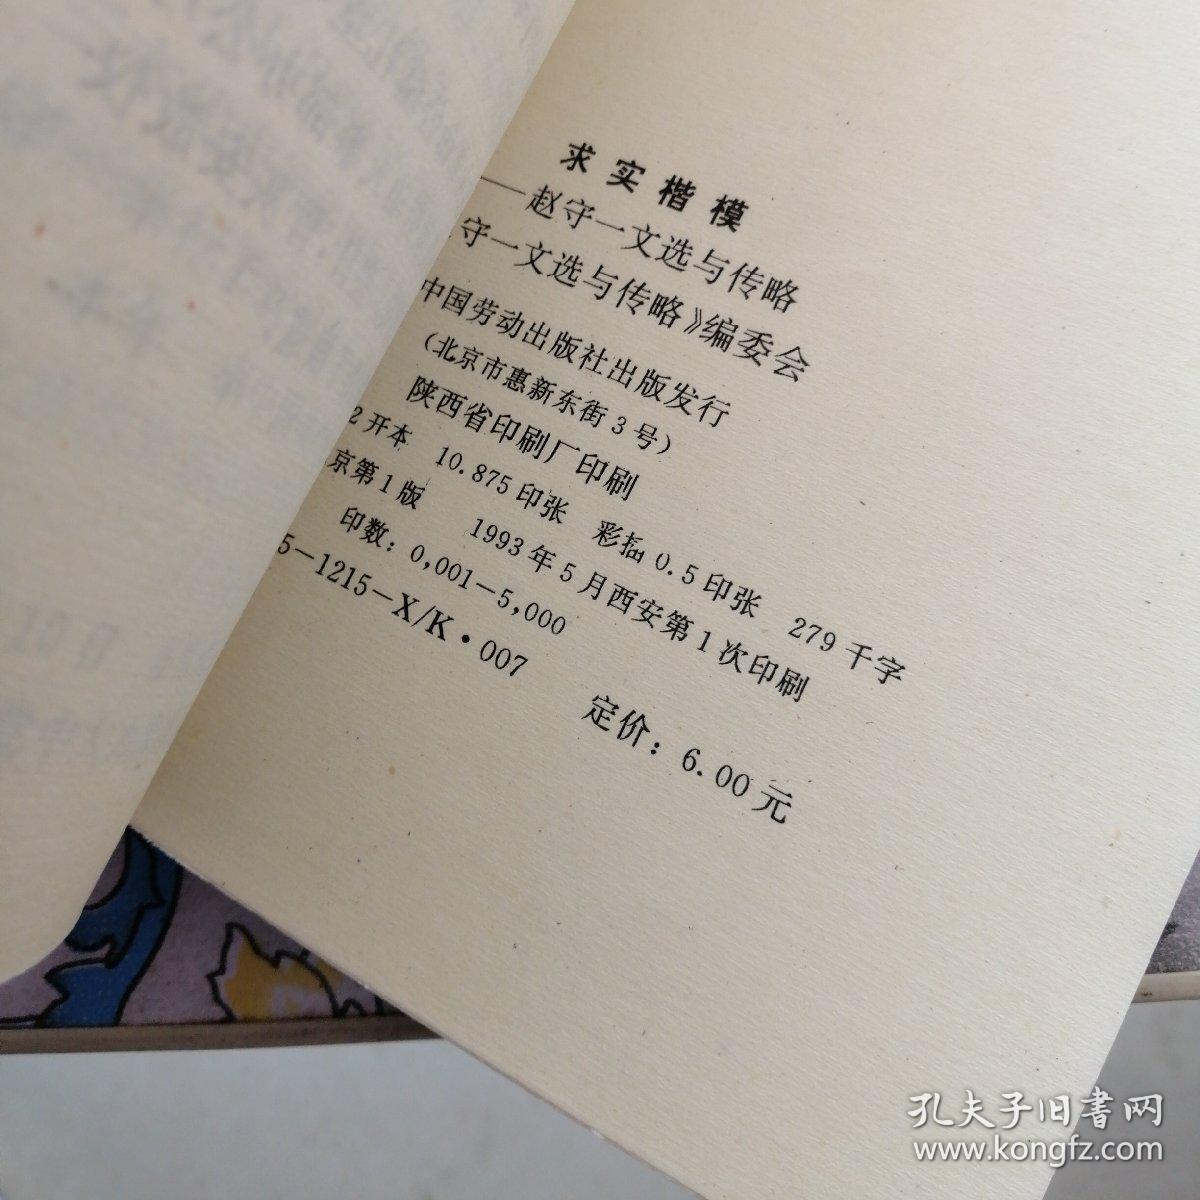 求实楷模
——赵守一文选与传略
守一文选与传略》编委会
中国劳动出版社出版发行
(北京市惠新东街3号)
陕西省印刷厂印刷
2开本 10.875印张 彩插0.5印张 279千字
京第1版 1993年5月西安第1次印刷
印数：0,001—5,000
5—1215—X/K·007
定价：6.00元
孔夫子旧书网
www.kongfz.com